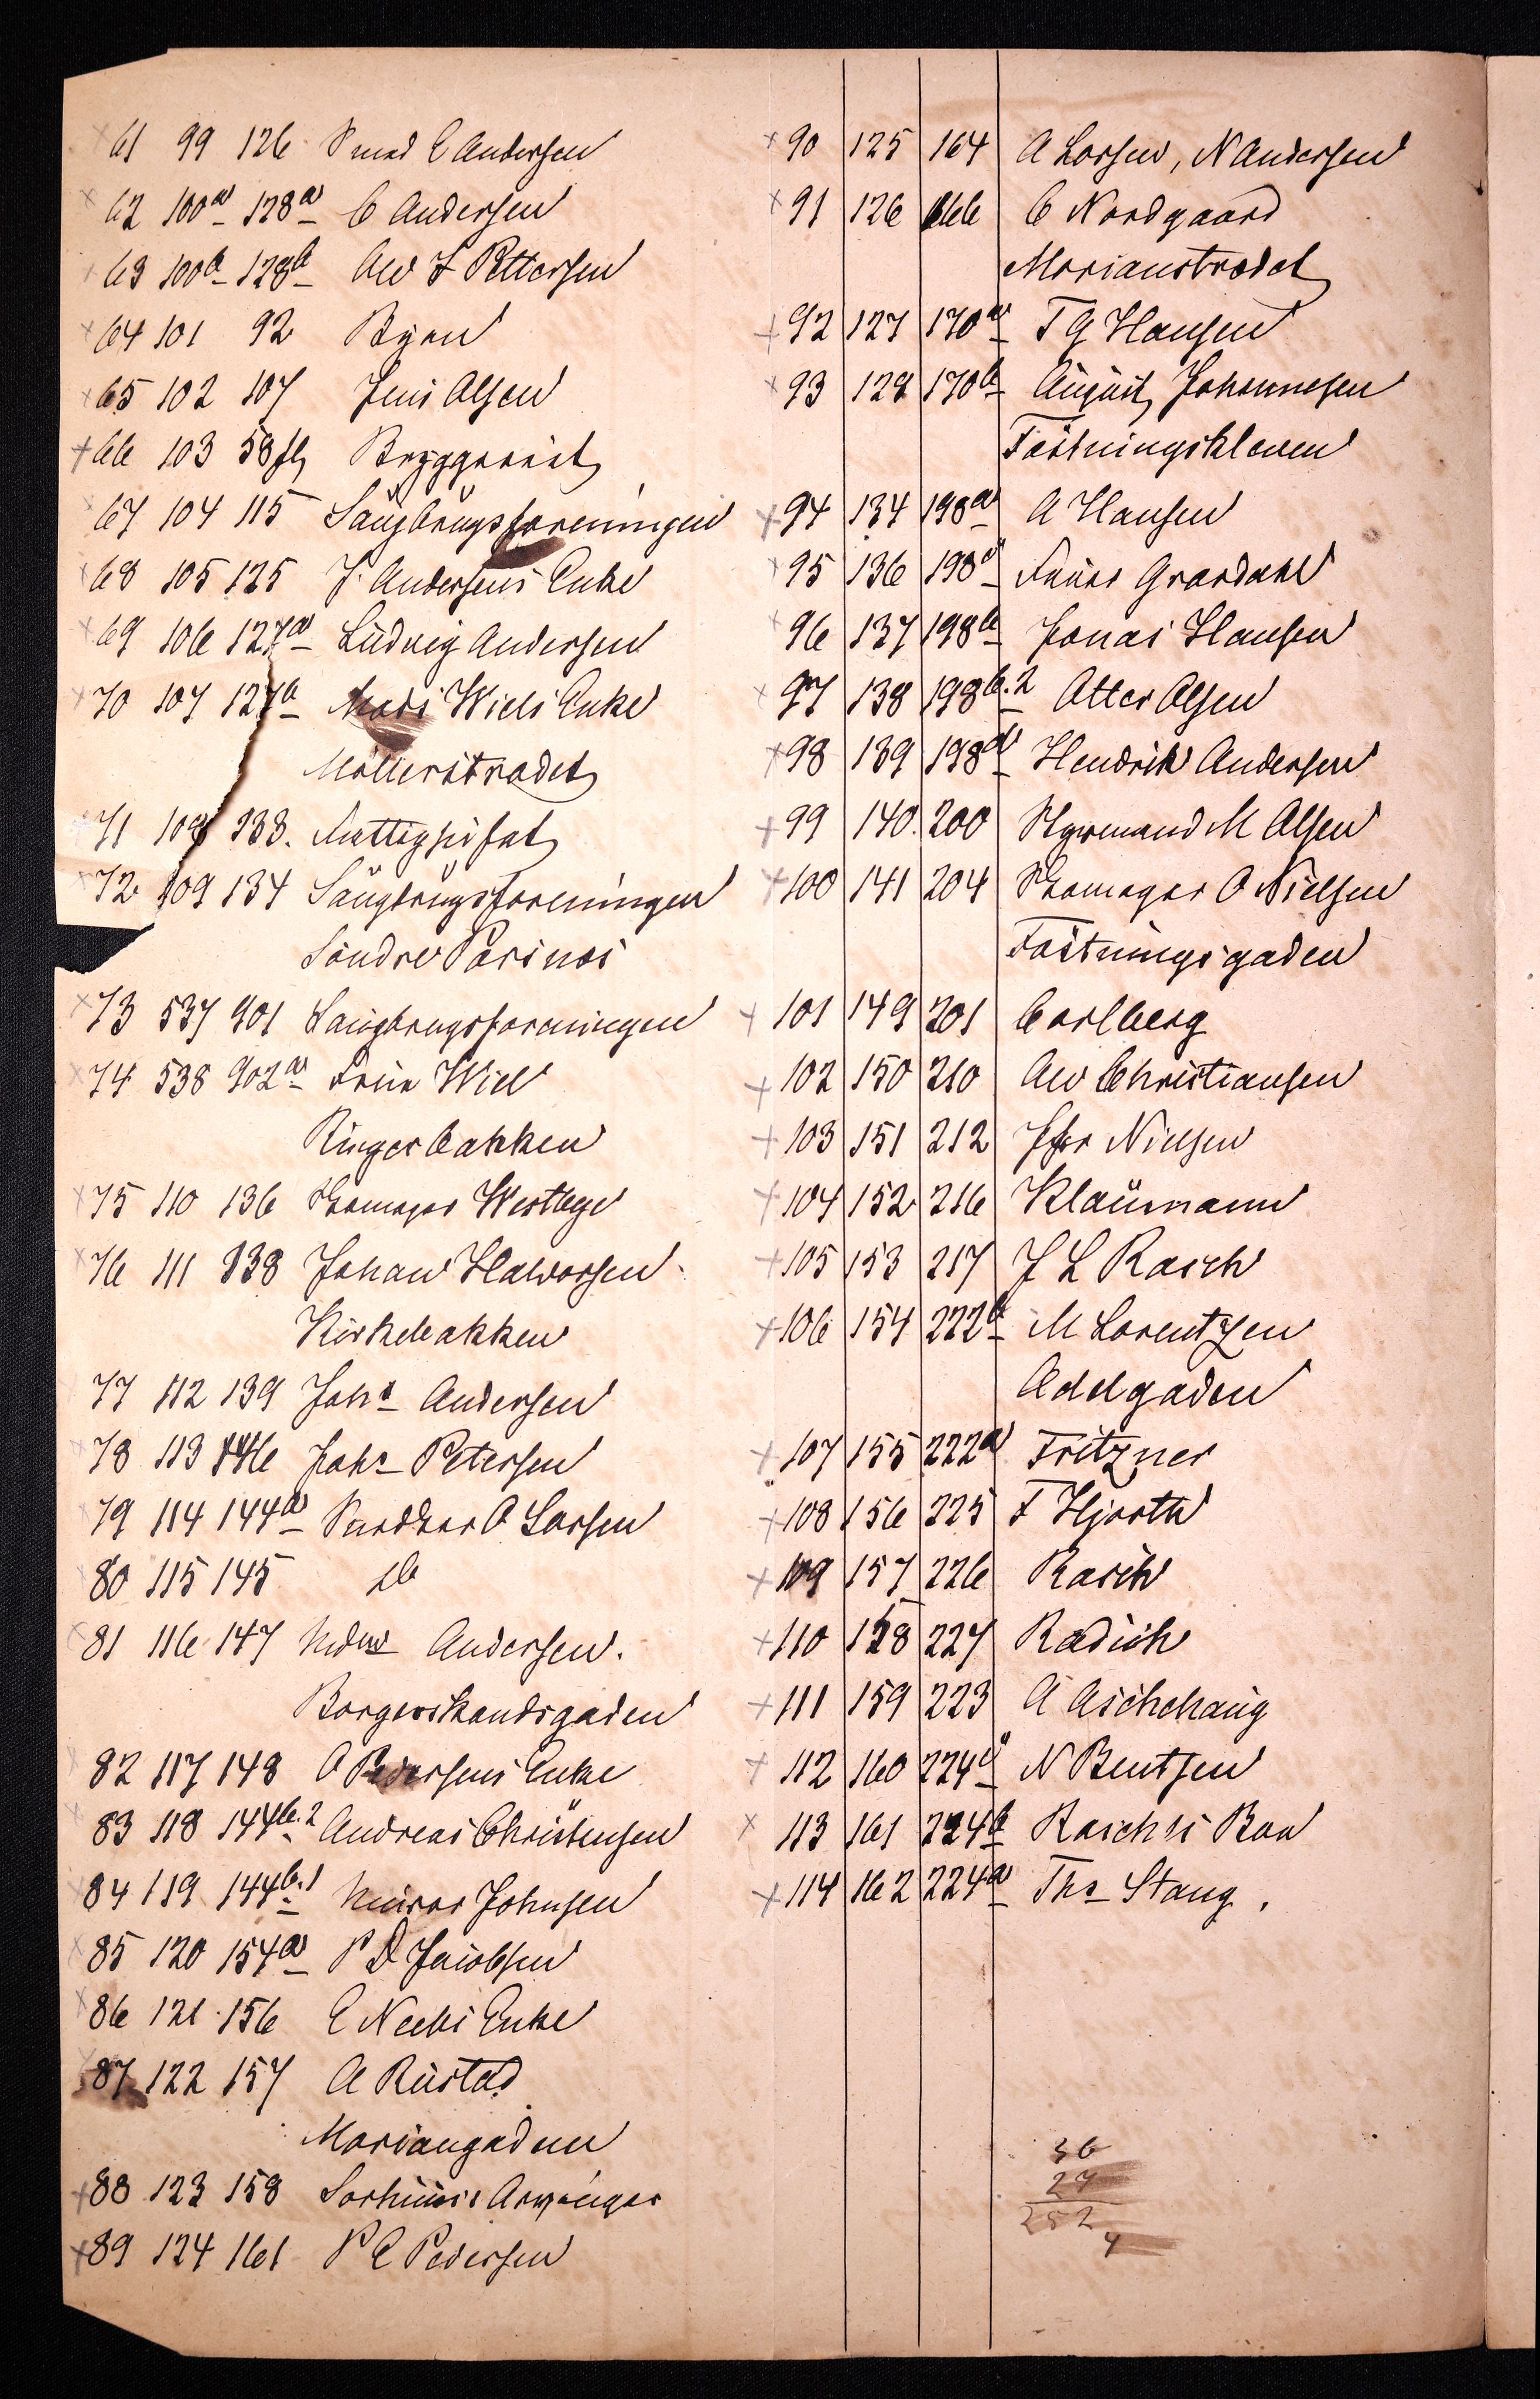 61 99 126 Smed E Andersen
62 100a 128a C Andersen
63 100b 128b Aw F Pettersen
64 101 92 Byen
65 102 107 Jens Olsen
66 103 58 fl Bryggeriet
67 104 115 Saugbrugsforeningen
68 105 125 J. Andersens Enke
69 106 127a Ludvig Andersen
70 107 127b Mads Wiels Enke
Möllerstrædet
71 108 133. Fattighuset
72 109 134 Saugbrugsforeningen
Söndre
73 537 901 Saugbrugsforeningen
74 538 902a Frue Wiel
Ringerbakken
75 110 136 Skomager Westbye
76 111 138 Johan Halvorsen
Kirkebakken
77 112 139 Johs Andersen
78 113 146 Johs Petersen
79 114 144a Snedker O Larsen
80 115 145 do
81 116 147 Andersen.
Borgerskandsgaden
82 117 148 O Pedersens Enke
83 118 144b.2 Andreas Christensen
84 119 144b.1 Murer Johnsen
85 120 154a P D Jacobsen
86 121 156 E Neebs Enke
87 122 157 A Rustad
Mariangaden
88 123 158 Sorknæss Arvinger
89 124 161 P E Pedersen
90 125 164 A Larsen, N Andersen
91 126 166 C Nordgaard
Marianstrædet
92 127 170a T G Hansen
93 129 170b August Johannesen
Fæstningskleven
94 134 198a A Hansen
95 136 198c Frues Grardahl
96 137 198b Jonas Hansen
97 138 198b.2 Otter Olsen
98 139 198d Hendrik Andersen
99 140. 200 Styrmand M Olsen
100 141 204 Skomager O Nielsen
Fæstningsgaden
101 149 201 Carlberg
102 150 210 Aw Christiansen
103 151 212 Nielsen
104 152 216 Klaumann
105 153 217 J L Rasch
106 154 222b M Lorentzen
Adelgaden
107 155 222a Fritzner
108 156 225 F Hjorth
109 157 226 Rasch
110 158 227 Radich
111 159 223 A Aschehaug
112 160 224c N Bentsen
113 161 224b Raschs Bou
114 162 224a Ths Stang.
36
27
252
4